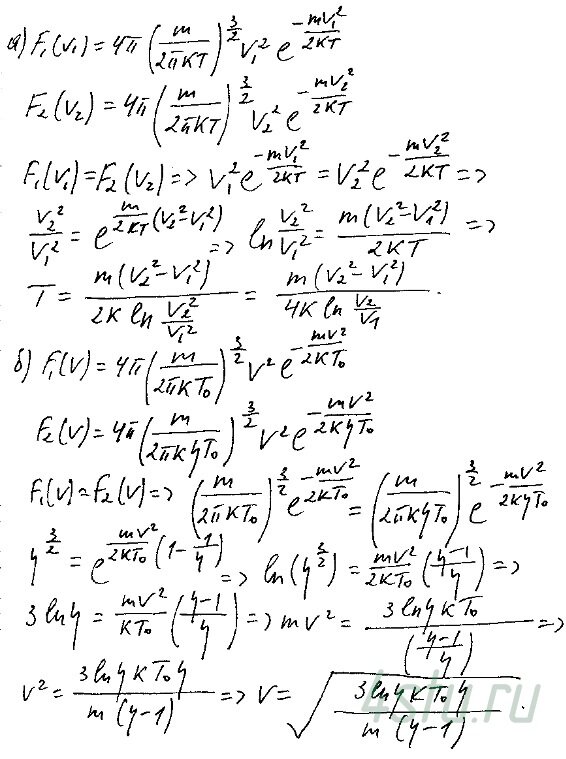 а) F₁(v₁) = 4π (m/2πKT)^(3/2) v₁² e^(-mv₁²/2KT)
F₂(v₂) = 4π (m/2πKT)^(3/2) v₂² e^(-mv₂²/2KT)
F₁(v₁) = F₂(v₂) => v₁² e^(-mv₁²/2KT) = v₂² e^(-mv₂²/2KT) =>
v₂²/v₁² = e^(m/2KT (v₂²-v₁²)) => ln v₂²/v₁² = m(v₂²-v₁²)/2KT =>
T = m(v₂²-v₁²)/(2K ln v₂²/v₁²) = m(v₂²-v₁²)/(4K ln v₂/v₁).
б) F₁(v) = 4π (m/2πKT₀)^(3/2) v² e^(-mv²/2KT₀)
F₂(v) = 4π (m/2πKηT₀)^(3/2) v² e^(-mv²/2KηT₀)
F₁(v) = F₂(v) => (m/2πKT₀)^(3/2) e^(-mv²/2KT₀) = (m/2πKηT₀)^(3/2) e^(-mv²/2KηT₀)
η^(3/2) = e^(mv²/2KT₀ (1-1/η)) => ln(η^(3/2)) = mv²/2KT₀ ((η-1)/η) =>
3 ln η = mv²/KT₀ ((η-1)/η) => mv² = 3 ln η KT₀/((η-1)/η) =>
v² = 3 ln η KT₀ η/(m(η-1)) => v = √(3 ln η KT₀ η/(m(η-1))).
4stu.ru